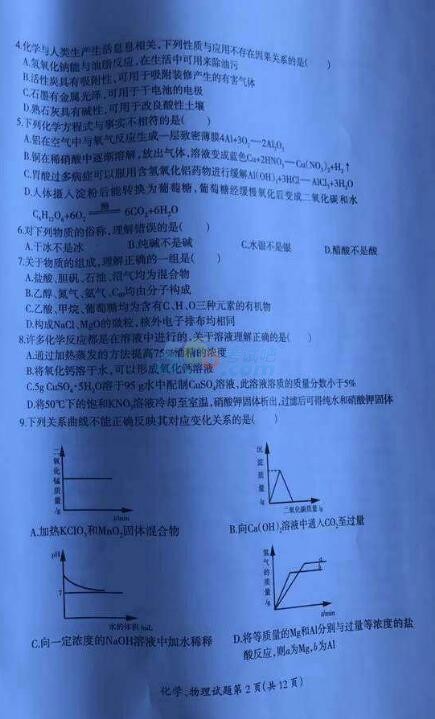 4.化学与人类生产生活息息相关,下列性质与应用不存在因果关系的是( )
A.氢氧化钠能与油脂反应,在生活中可用来除油污
B.活性炭具有吸附性,可用于吸附装修产生的有害气体
C.石墨有金属光泽,可用于干电池的电极
D.熟石灰具有碱性,可用于改良酸性土壤
5.下列化学方程式与事实不相符的是( )
A.铝在空气中与氧气反应生成一层致密薄膜4Al+3O₂—2Al₂O₃
B.铜在稀硝酸中逐渐溶解,放出气体,溶液变成蓝色Cu+2HNO₃—Cu(NO₃)₂+H₂↑
C.胃酸过多病症可以服用含氢氧化铝药物进行缓解Al(OH)₃+3HCl—AlCl₃+3H₂O
D.人体摄入淀粉后能转换为葡萄糖,葡萄糖经缓慢氧化后变成二氧化碳和水
C₆H₁₂O₆+6O₂ 酶 6CO₂+6H₂O
6.对下列物质的俗称,理解错误的是( )
A.干冰不是冰 B.纯碱不是碱 C.水银不是银 D.醋酸不是酸
7.关于物质的组成,理解正确的一组是( )
A.盐酸、胆矾、石油、沼气均为混合物
B.乙醇、氮气、氨气、C₆₀均由分子构成
C.乙酸、甲烷、葡萄糖均为含有C、H、O三种元素的有机物
D.构成NaCl、MgO的微粒,核外电子排布均相同
8.许多化学反应都是在溶液中进行的,关于溶液理解正确的是( )
A.通过加热蒸发的方法提高75%酒精的浓度
B.将氧化钙溶于水,可以形成氧化钙溶液
C.5g CuSO₄·5H₂O溶于95 g水中配制CuSO₄溶液,此溶液溶质的质量分数小于5%
D.将50℃下的饱和KNO₃溶液冷却至室温,硝酸钾固体析出,过滤后可得纯水和硝酸钾固体
9.下列关系曲线不能正确反映其对应变化关系的是( )
二氧化锰质量/g
t/min
沉淀质量/g
二氧化碳质量/g
A.加热KClO₃和MnO₂固体混合物
B.向Ca(OH)₂溶液中通入CO₂至过量
pH
7
水的体积/mL
氢气的质量/g
a
t/min
C.向一定浓度的NaOH溶液中加水稀释
D.将等质量的Mg和Al分别与过量等浓度的盐
酸反应,则a为Mg,b为Al
化学、物理试题第2页(共12页)